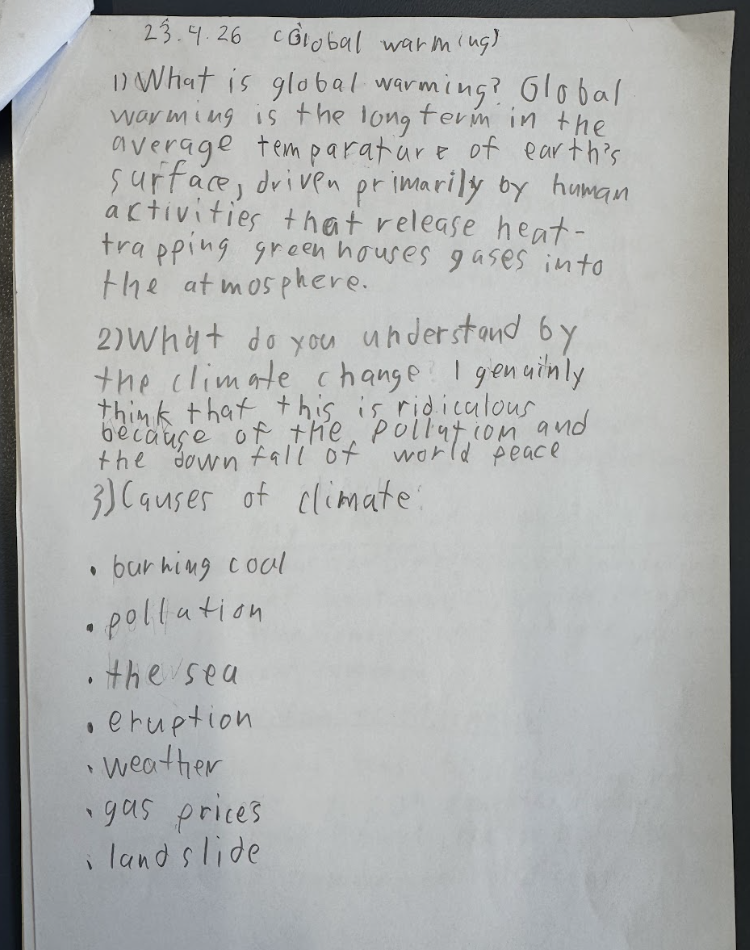 23.4.26 (Global warming)
1) What is global warming? Global
warming is the long term in the
average temparature of earth's
surface, driven primarily by human
activities that release heat-
trapping greenhouses gases into
the atmosphere.
2) What do you understand by
the climate change? I genuinly
think that this is ridiculous
because of the pollution and
the down fall of world peace
3) Causes of climate:
• burning coal
• pollution
• the sea
• eruption
• weather
• gas prices
• landslide